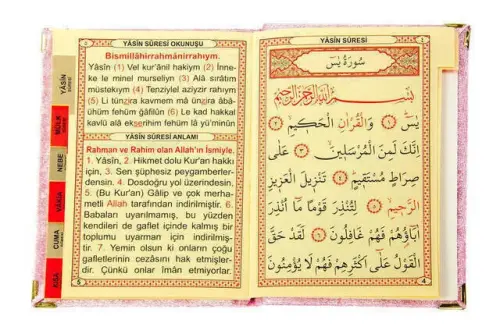 YÂSÎN SÛRESİ OKUNUŞU
Bismillâhirrahmânirrahıym.
Yâsîn (1) Vel kur'ânil hakiym (2) İnne-
ke le minel murseliyn (3) Alâ sırâtım
müstekıym (4) Tenziylel aziyzir rahıym
(5) Li tünzira kavmem mâ ünzira âbâ-
ühüm fehüm ğâfilûn (6) Le kad hakkal
kavlü alâ ekserihim fehüm lâ yü'minûn
YÂSÎN SÛRESİ ANLAMI
Rahman ve Rahim olan Allah'ın İsmiyle.
1. Yâsîn, 2. Hikmet dolu Kur'an hakkı
için, 3. Sen şüphesiz peygamberler-
densin. 4. Dosdoğru yol üzerindesin,
5. (Bu Kur'an) Gâlip ve çok merha-
metli Allah tarafından indirilmiştir. 6.
Babaları uyarılmamış, bu yüzden
kendileri de gaflet içinde kalmış bir
toplumu uyarman için indirilmiş-
tir. 7. Yemin olsun ki onların çoğu
gafletlerinin cezasını hak etmişler-
dir. Çünkü onlar iman etmiyorlar.
5
YÂSİN
SÛRESİ
MÜLK
NEBE
VÂKIA
CUMA
KISA
YÂSÎN SÛRESİ
سُورَةُ يٰسٓ
بِسْمِ اللّٰهِ الرَّحْمٰنِ الرَّحِيمِ
يٰسٓ ﴿١﴾ وَالْقُرْاٰنِ الْحَكِيمِ ﴿٢﴾
اِنَّكَ لَمِنَ الْمُرْسَلِينَ ﴿٣﴾ عَلٰى
صِرَاطٍ مُسْتَقِيمٍ ﴿٤﴾ تَنْزِيلَ الْعَزِيزِ
الرَّحِيمِ ﴿٥﴾ لِتُنْذِرَ قَوْمًا مَا اُنْذِرَ
اٰبَاؤُهُمْ فَهُمْ غَافِلُونَ ﴿٦﴾ لَقَدْ حَقَّ
الْقَوْلُ عَلٰى اَكْثَرِهِمْ فَهُمْ لَا يُؤْمِنُونَ
4